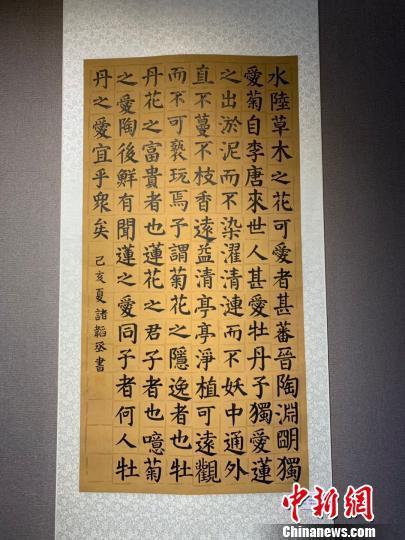 水陸草木之花可愛者甚蕃晉陶淵明獨
愛菊自李唐來世人甚愛牡丹予獨愛蓮
之出淤泥而不染濯清漣而不妖中通外
直不蔓不枝香遠益清亭亭淨植可遠觀
而不可褻玩焉予謂菊花之隱逸者也牡
丹花之富貴者也蓮花之君子者也噫菊
之愛陶後鮮有聞蓮之愛同予者何人牡
丹之愛宜乎眾矣
己亥夏諸韜丞書
中新网
Chinanews.com